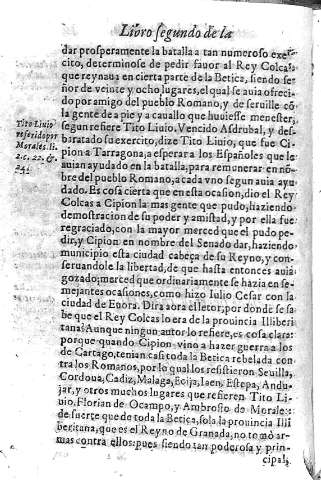 Libro segundo de la
dar prosperamente la batalla a tan numeroso exer-
cito, determinose de pedir fauor al Rey Colcas,
que reynaua en cierta parte de la Betica, siendo se-
ñor de veinte y ocho lugares, el qual se auia ofreci-
do por amigo del pueblo Romano, y de seruille cō
la gente de a pie y a cauallo que huuiesse menester,
segun refiere Tito Liuio. Vencido Asdrubal, y des-
baratado su exercito, dize Tito Liuio, que fue Ci-
pion a Tarragona, a esperar a los Españoles que le
auian ayudado en la batalla, para remunerar en nō-
bre del pueblo Romano, a cada vno segun auia ayu-
dado. Es cosa cierta que en esta ocasion, dio el Rey
Colcas a Cipion la mas gente que pudo, haziendo
demostracion de su poder y amistad, y por ella fue
regraciado, con la mayor merced que el pudo pe-
dir, y Cipion en nombre del Senado dar, haziendo
municipio esta ciudad cabeça de su Reyno, y con-
seruandole la libertad, de que hasta entonces auia
gozado; merced que ordinariamente se hazia en se-
mejantes ocasiones, como hizo Iulio Cesar con la
ciudad de Euora. Dira aora el letor, por donde se sa-
be que el Rey Colcas lo era de la prouincia Illiberi-
tana? Aunque ningun autor lo refiere, es cosa clara:
porque quando Cipion vino a hazer guerra a los
de Cartago, tenian casi toda la Betica rebelada con
tra los Romanos, por lo qual los resistieron Seuilla,
Cordoua, Cadiz, Malaga, Ecija, Iaen, Estepa, Andu-
jar, y otros muchos lugares que refieren Tito Li-
uio, Florian de Ocampo, y Ambrosio de Morales:
de suerte que de toda la Betica, sola la prouincia Illi
beritana, que es el Reyno de Granada, no tomó ar-
mas contra ellos: pues siendo tan poderosa y prin-
cipal,
Tito Liuio
referido por
Morales. li.
2. c. 22. &